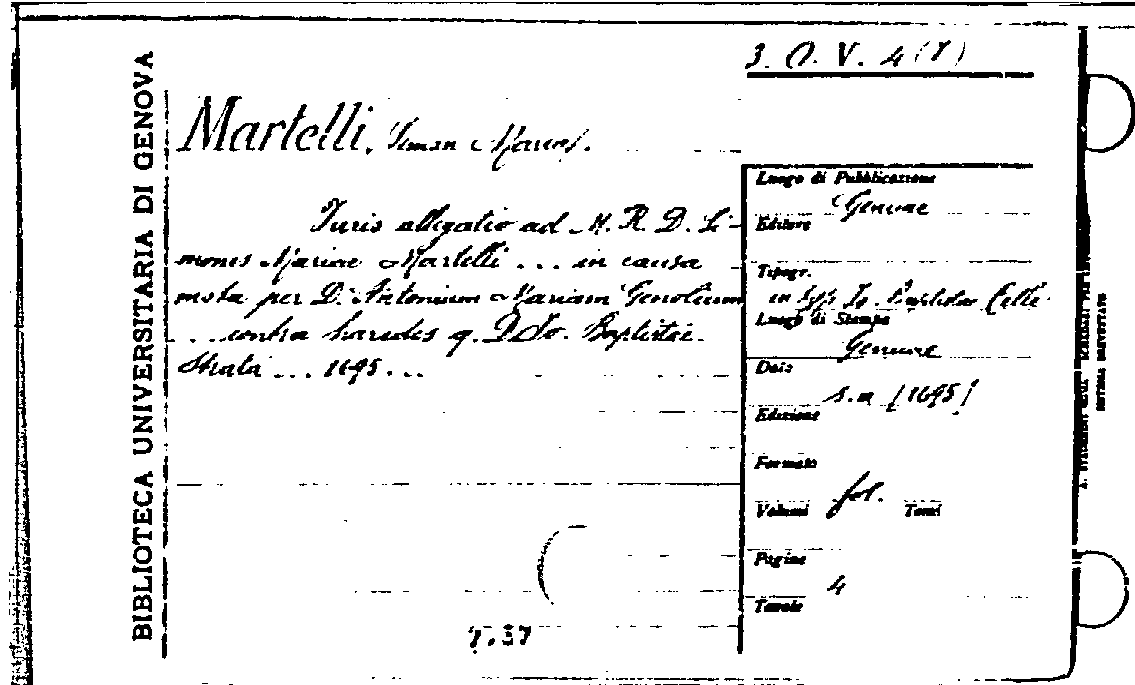 3. O. V. 4 (7)
BIBLIOTECA UNIVERSITARIA DI GENOVA
Martelli, Simon Marius.
Iuris allegatio ad M. R. D. Si-
monis Mariae Martelli ... in causa
mota per D. Antonium Mariam
... contra haredes q. D. Io. Baptistae
Strata ... 1695 ...
7.37
Luogo di Pubblicazione
Genuae
Editore
Tipogr.
in typ. Io. Baptistae Celle
Luogo di Stampa
Genuae
Data
s.a [1695]
Edizione
Formato
fol.
Volumi Tomi
Pagine
4
Tavole